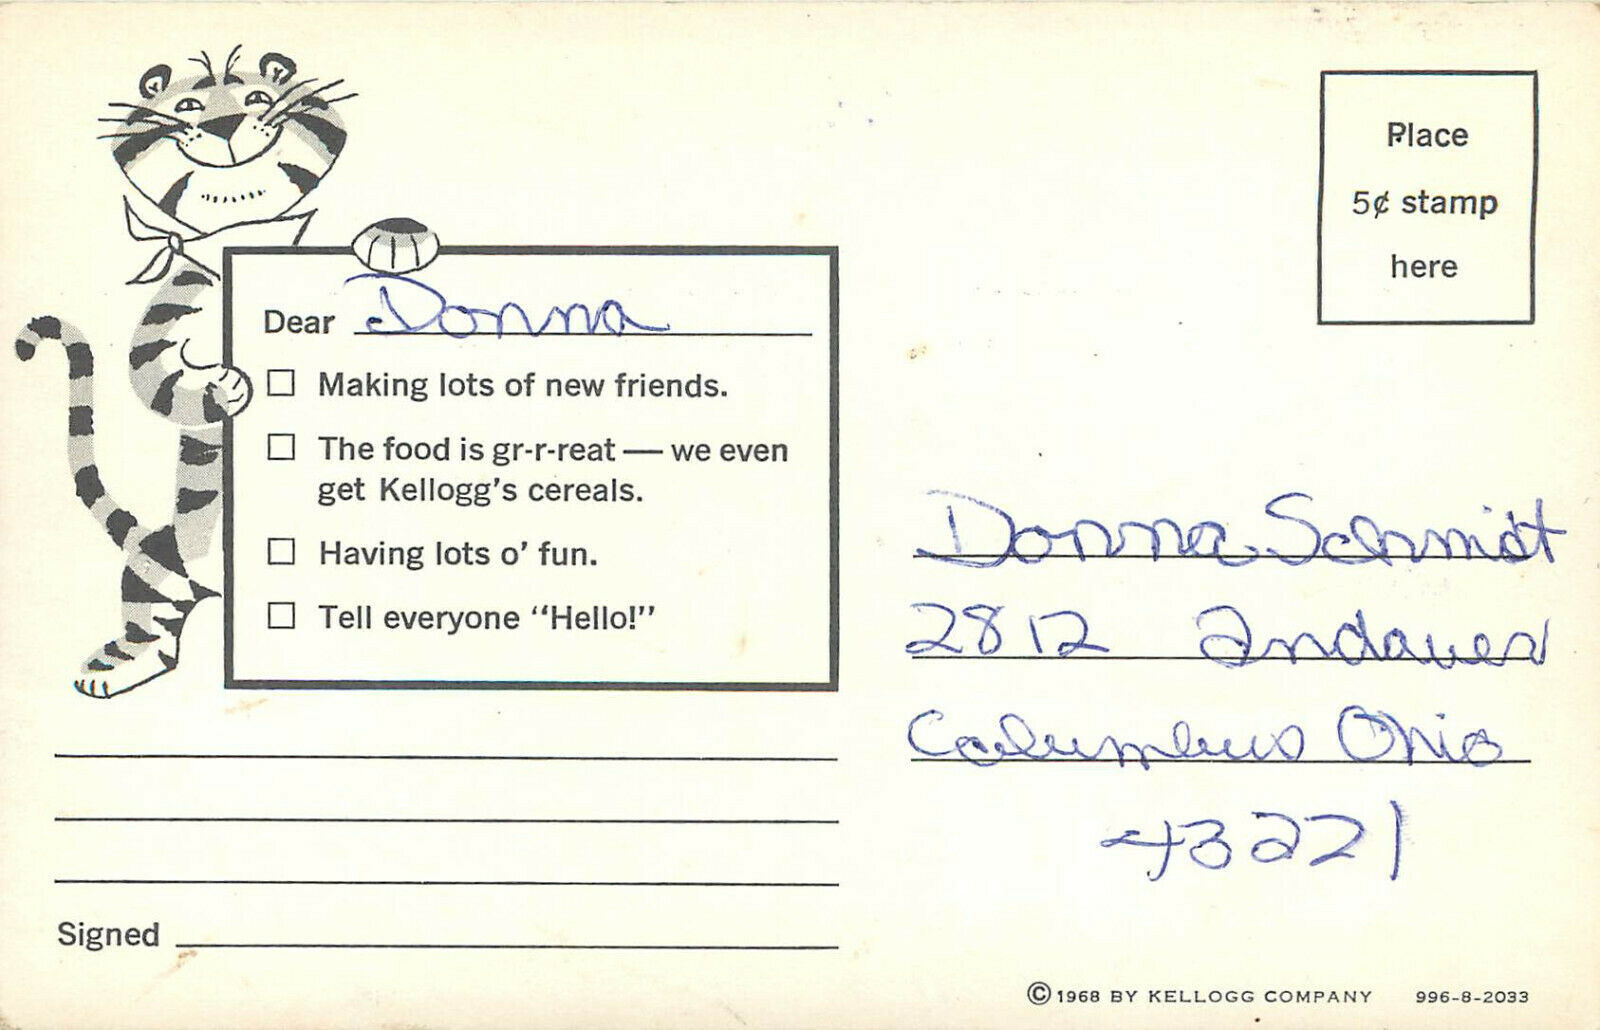 Place
5¢ stamp
here
Dear Donna
☐ Making lots of new friends.
☐ The food is gr-r-reat — we even
get Kellogg's cereals.
☐ Having lots o' fun.
☐ Tell everyone "Hello!"
Signed
Donna Schmidt
2812 Andover
Columbus Ohio
43221
© 1968 BY KELLOGG COMPANY 996-8-2033